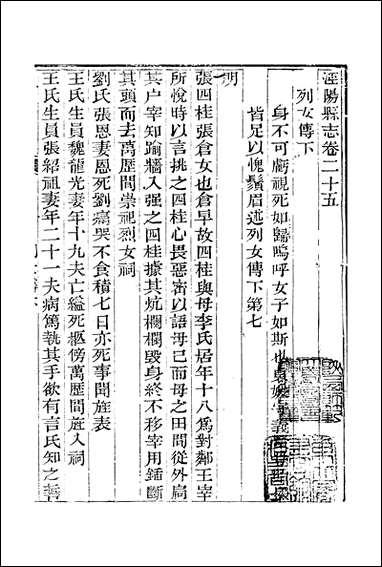 涇陽縣志卷二十五
列女傳下
身不可虧視死如歸嗚呼女子如斯也
皆足以愧鬚眉述列女傳下第七
明
張四桂張倉女也倉早故四桂與母李氏居年十八爲對鄰王宰
所悅時以言挑之四桂心畏惡密以語母已而母之田間從外扃
其户宰知踰牆入强之四桂據其炕欄欄毀身終不移宰用鍤斷
其頭而去萬歷間崇祀烈女祠
劉氏張恩妻恩死劉痛哭不食積七日亦死事聞旌表
王氏生員魏龍光妻年十九夫亡縊死柩傍萬歷間旌入祠
王氏生員張紹祖妻年二十一夫病篤執其手欲有言氏知之誓